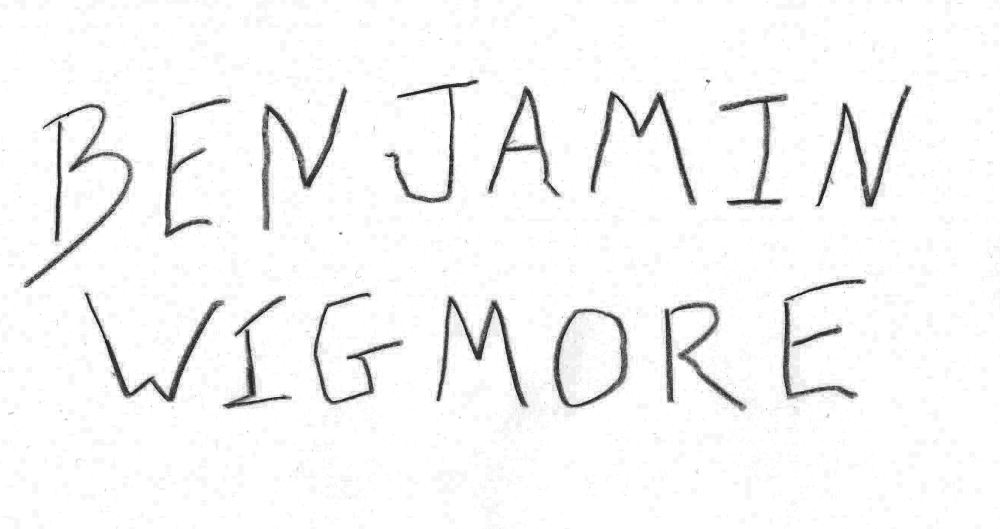 BENJAMIN
WIGMORE